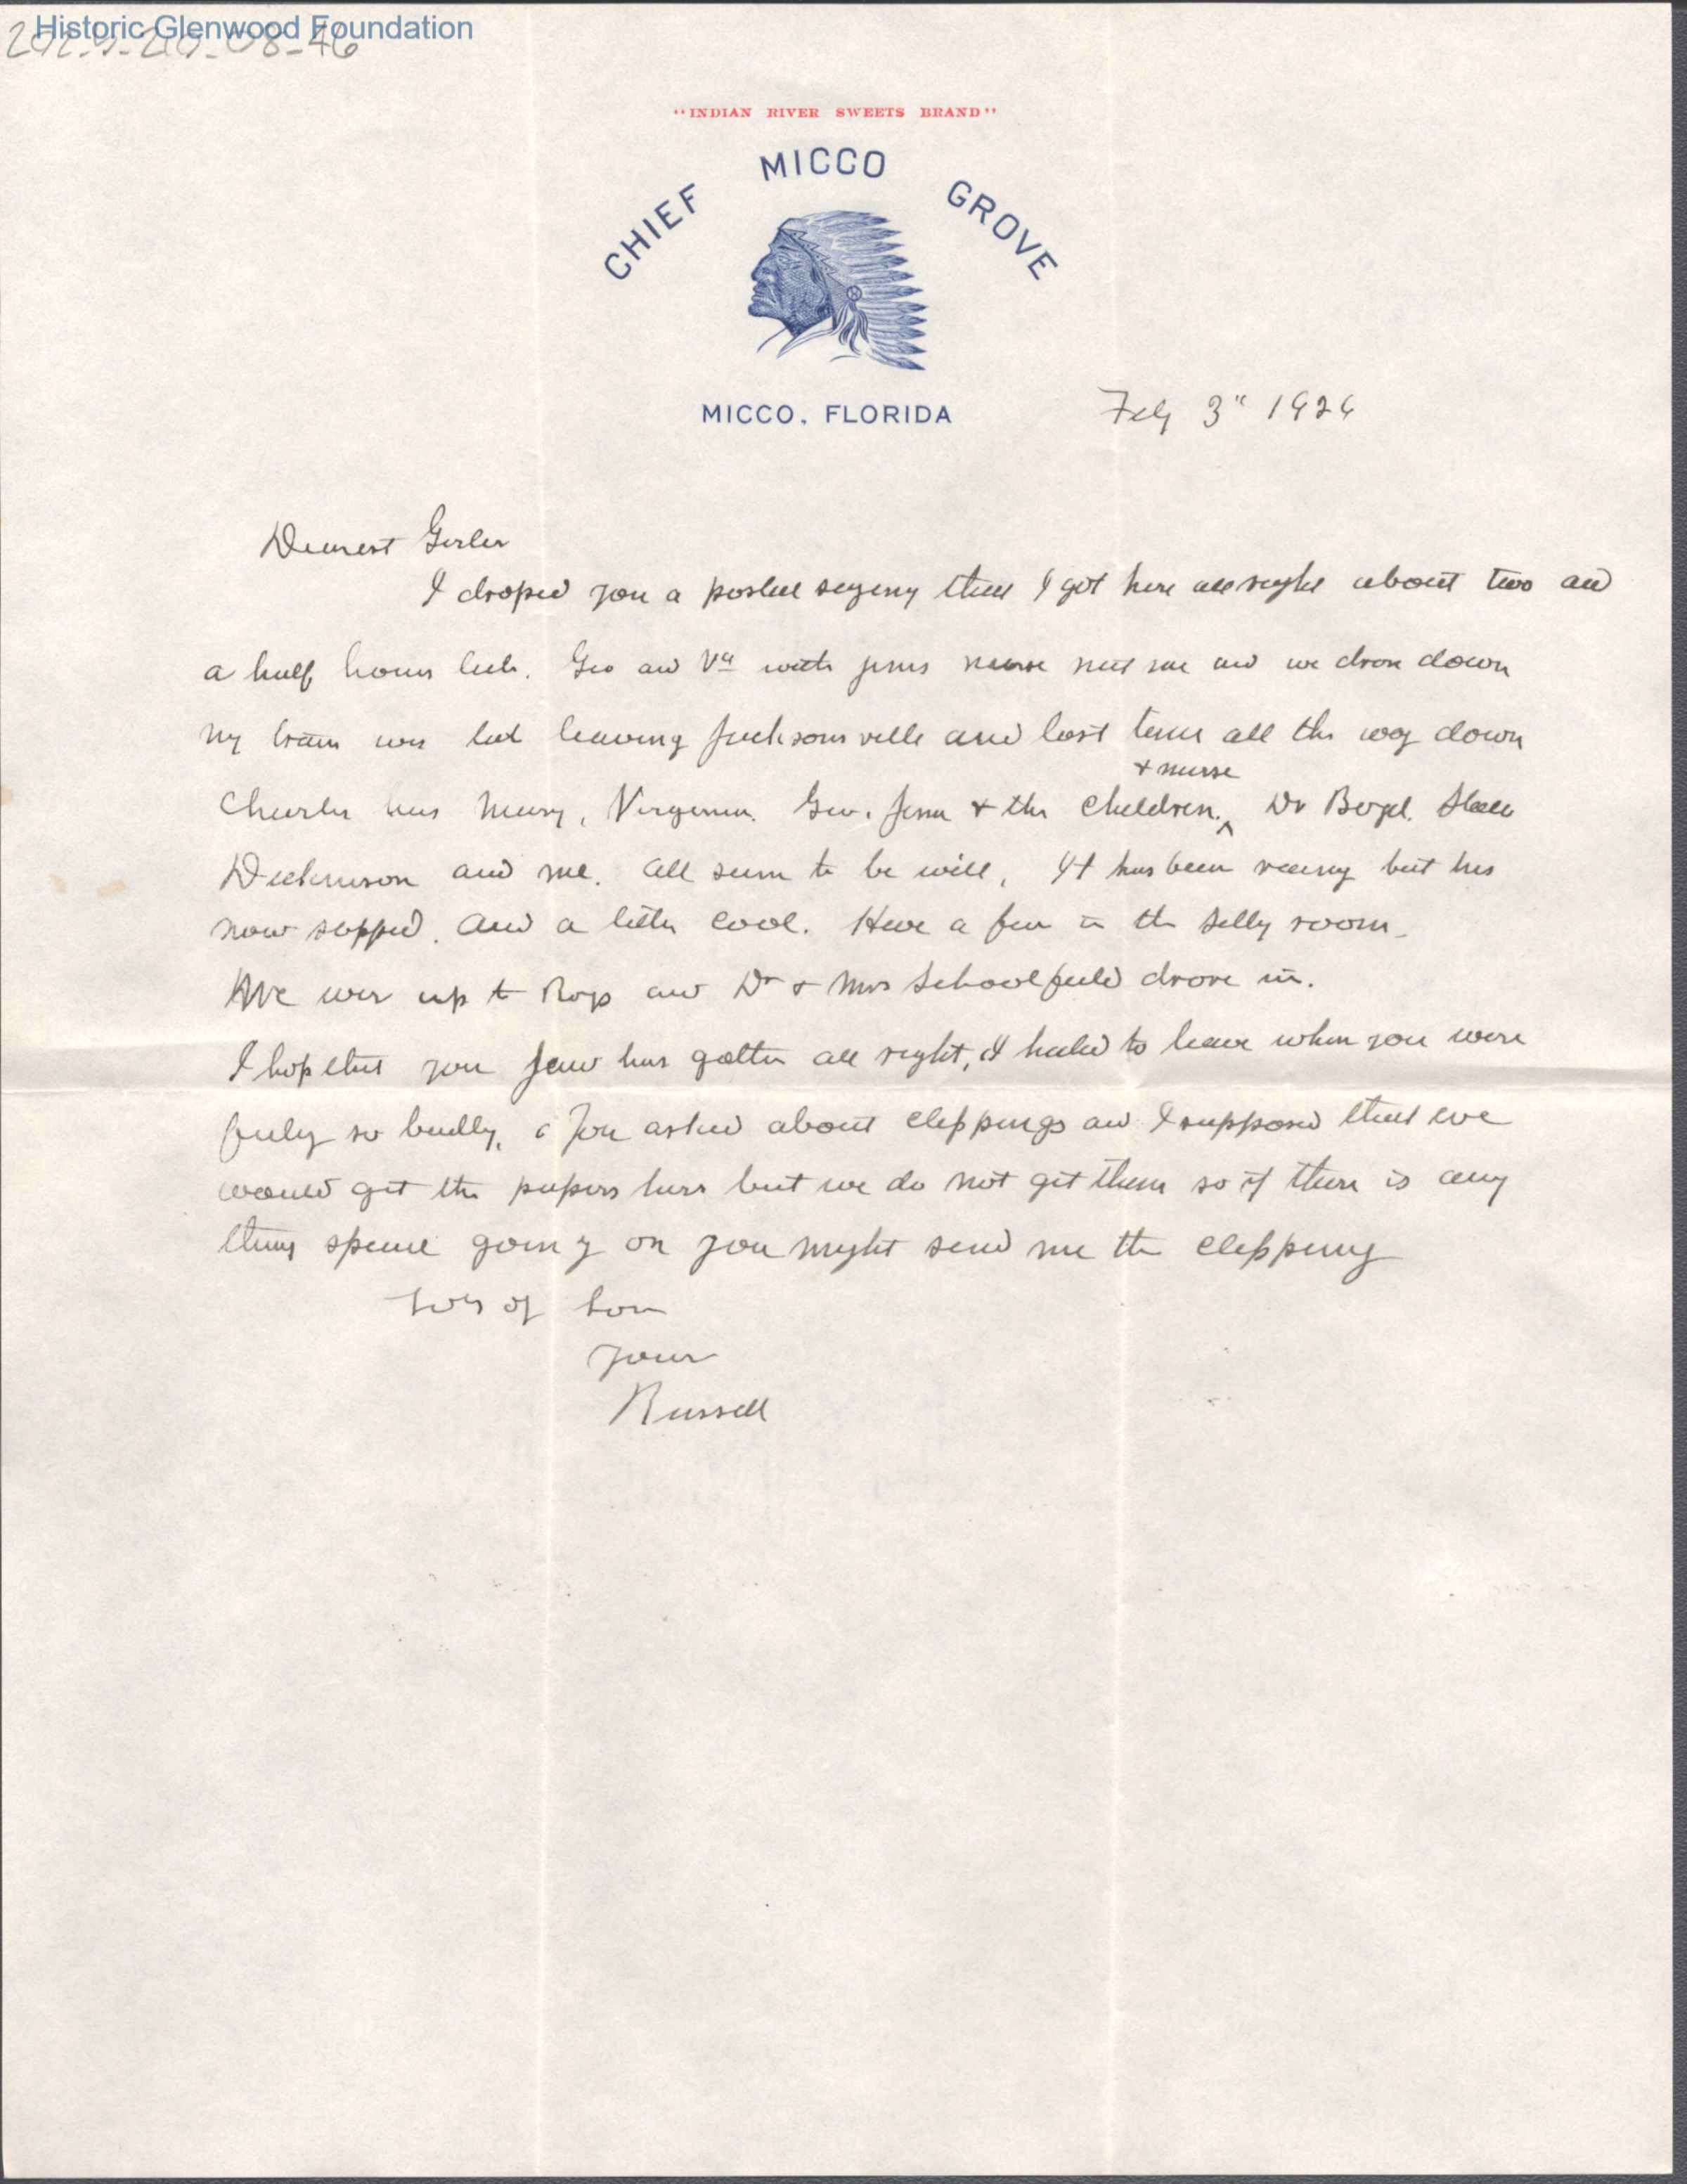 Historic Glenwood Foundation
"INDIAN RIVER SWEETS BRAND"
CHIEF MICCO GROVE
MICCO, FLORIDA
Feby 3" 1926
Dearest Girlie
I droped you a postal saying that I got here all right about two and
a half hours late. Geo and Va with nurse met me and we drove down
My train was late leaving Jacksonville and lost time all the way down
+ nurse
Charlie has Mary, Virginia. Geo. Jena + the Children. Dr Boyd.
Dickinson and me. All seem to be well, It has been rainy but has
now stopped. And a little cool. Have a fire in the silly room
We were up to Rays and Dr + Mrs Schoolfield drove in.
I hop that you Jaw has gotten all right, I hated to leave when you were
so badly, You asked about clippings and I supposed that we
would get the papers here but we do not get them so if there is any
thing special going on you might send me the clipping
Lots of Love
Your
Russell